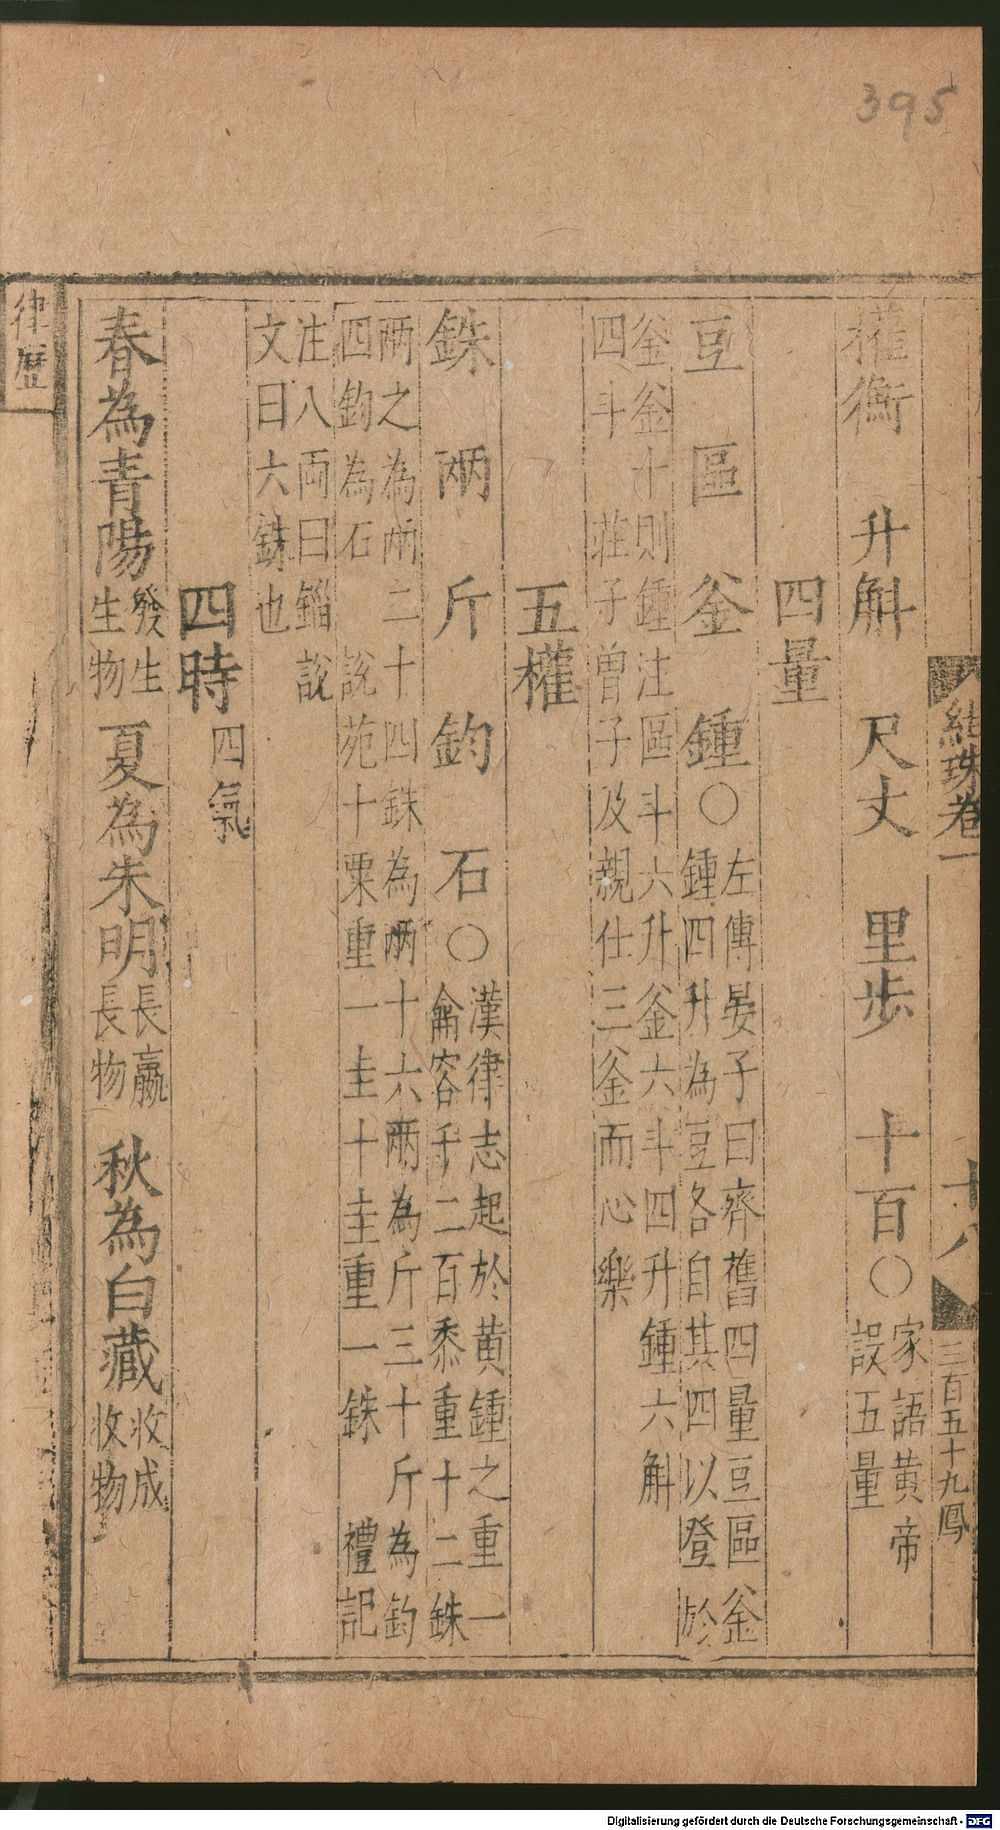 395
結珠卷一
十八
三百五十九鳳
權衡　升斛　尺丈　里步　十百○家語黃帝
設五量
四量
豆　區　釜　鍾○左傳晏子曰齊舊四量豆區釜
鍾四升為豆各自其四以登於
釜釜十則鍾注區斗六升釜六斗四升鍾六斛
四斗　莊子曾子及親仕三釜而心樂
五權
銖　兩　斤　鈞　石○漢律志起於黃鍾之重一
龠容千二百黍重十二銖
兩之為兩二十四銖為兩十六兩為斤三十斤為鈞
四鈞為石　說苑十粟重一圭十圭重一銖　禮記
注八両曰錙說
文曰六銖也
四時四氣
春為青陽發生
生物　夏為朱明長嬴
長物　秋為白藏收成
收物
律歷
Digitalisierung gefördert durch die Deutsche Forschungsgemeinschaft - DFG